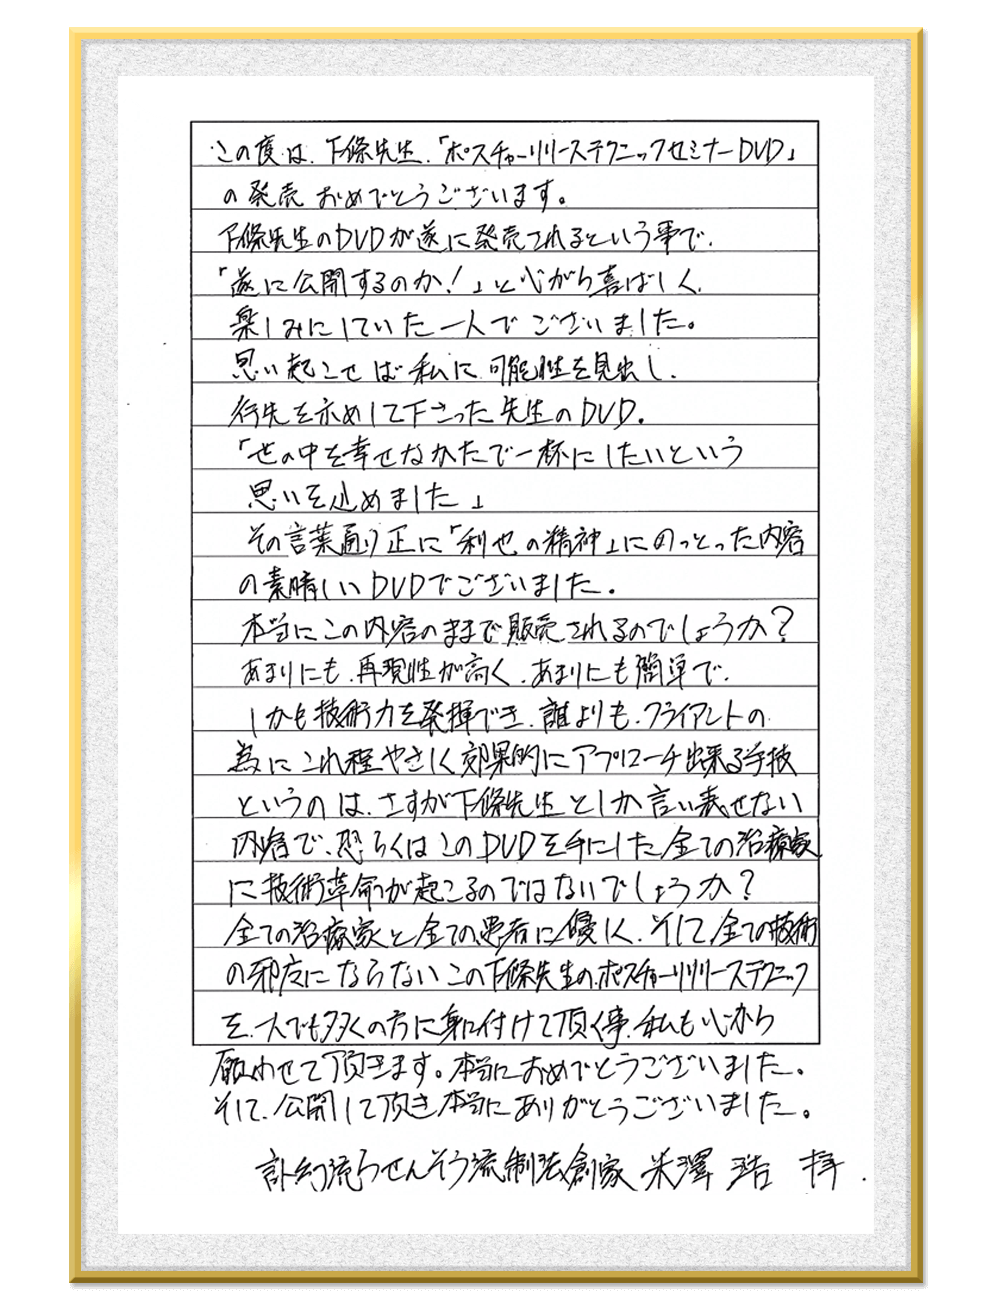 この度は、下條先生、「ポスチャーリリーステクニックセミナーDVD」
の発売 おめでとうございます。
下條先生のDVDが遂に発売されるという事で、
「遂に公開するのか!」と心から喜ばしく、
楽しみにしていた一人でございました。
思い起こせば私に可能性を見出し、
行先を示めして下さった先生のDVD。
「世の中を幸せなかたで一杯にしたいという
思いを込めました」
その言葉通り正に「利他の精神」にのっとった内容
の素晴しいDVDでございました。
本当にこの内容のままで販売されるのでしょうか?
あまりにも、再現性が高く、あまりにも簡単で、
しかも技術力を発揮でき、誰よりも、クライアントの
為にこれ程やさしく効果的にアプローチ出来る手技
というのは、さすが下條先生としか言い表せない
内容で、恐らくはこのDVDを手にした全ての治療家
に技術革命が起こるのではないでしょうか?
全ての治療家と全ての患者に優しく、そして全ての技術
の邪魔にならないこの下條先生の、ポスチャーリリーステクニック
を、一人でも多くの方に身に付けて頂く事、私も心から
願わせて頂きます。本当におめでとうございました。
そして、公開して頂き本当にありがとうございました。
流らせんそう流制法創家 米澤 浩